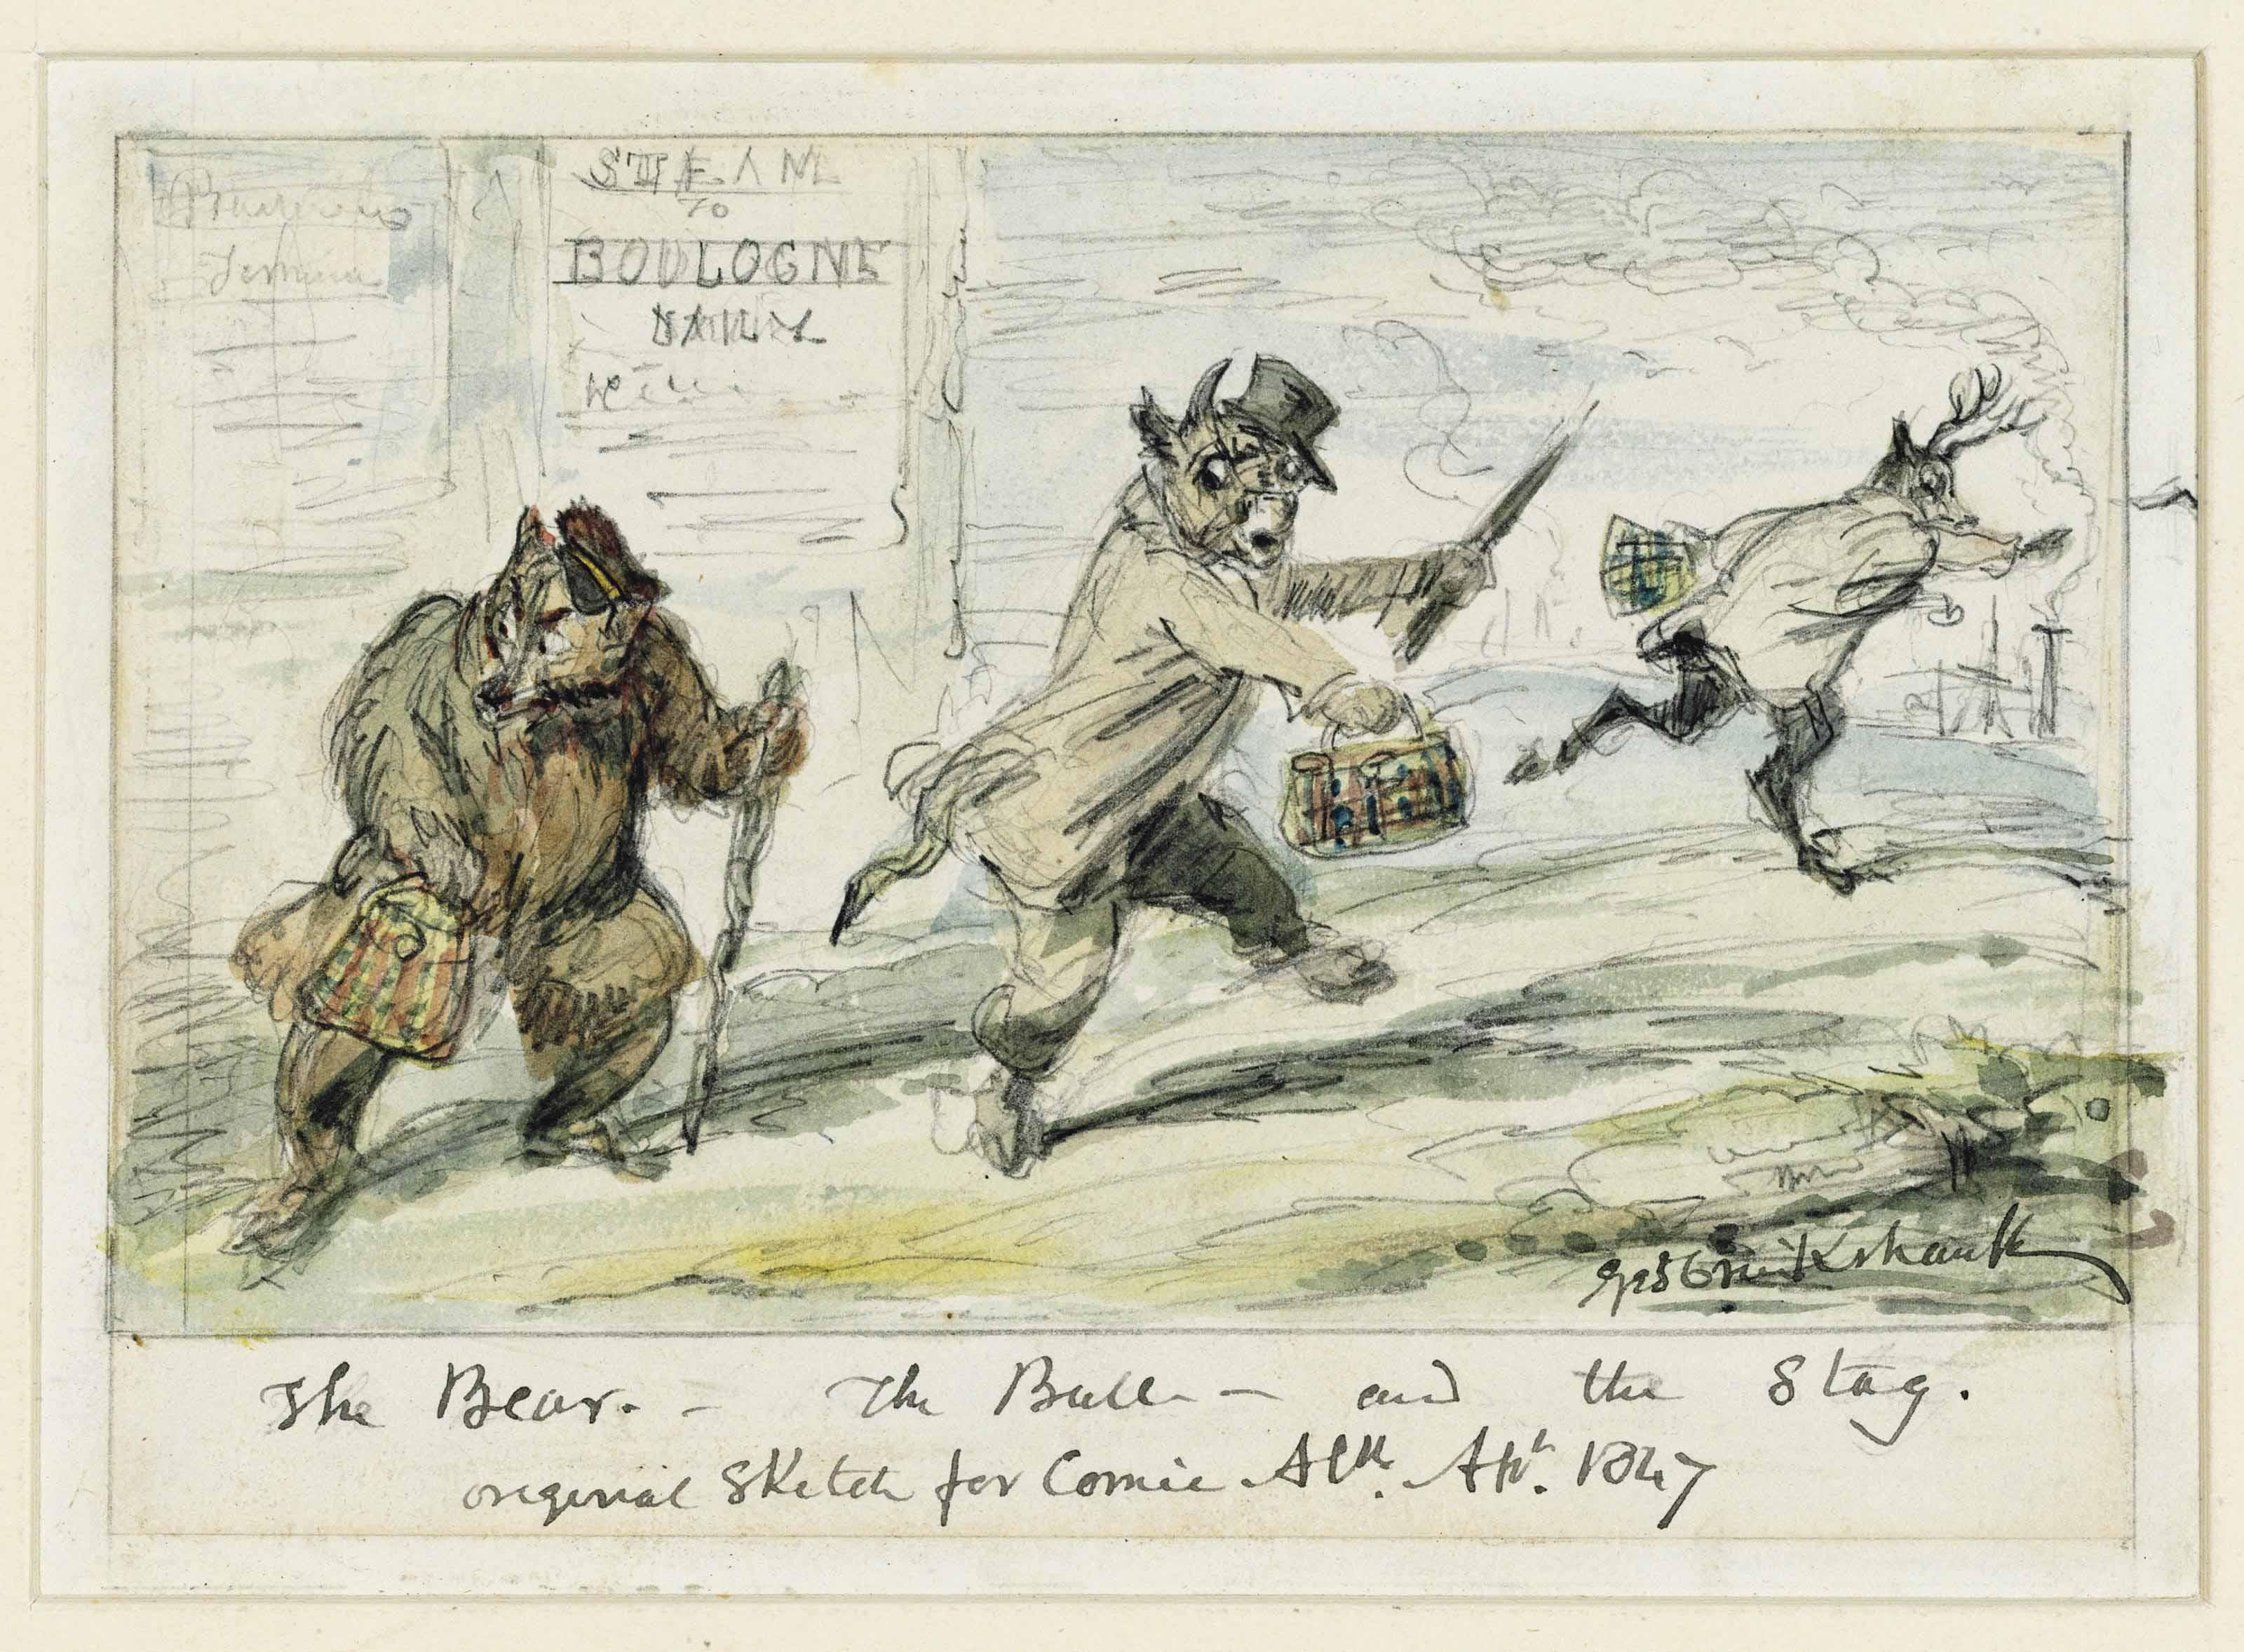 STEAM
TO
BOULOGNE
DAILY
Geo Cruikshank
The Bear. - The Bull - and the Stag.
original Sketch for Comic Alk. Apl. 1847